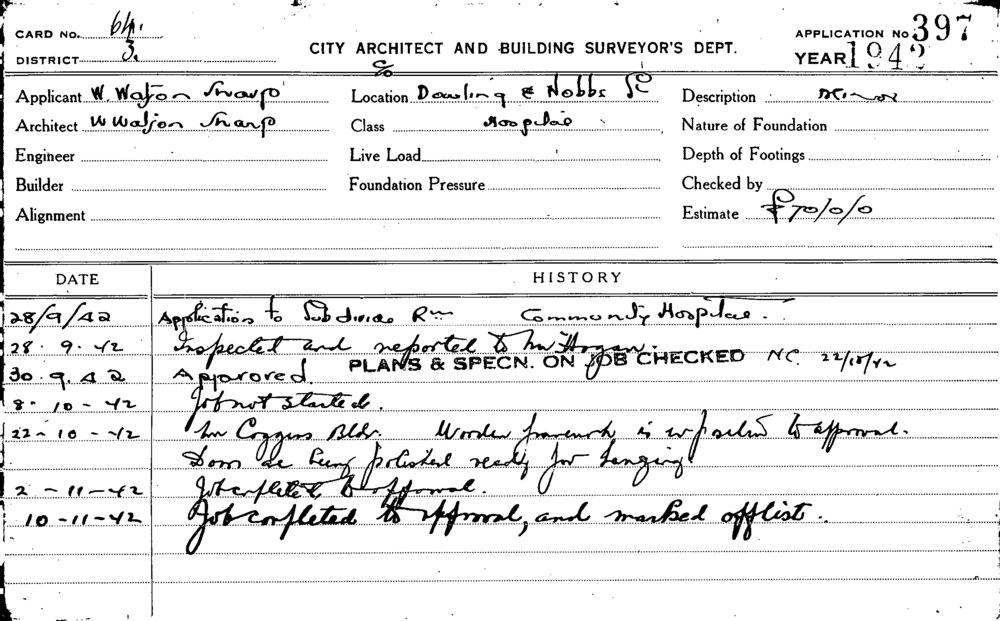 CARD NO. 64.
DISTRICT 3.
CITY ARCHITECT AND BUILDING SURVEYOR'S DEPT.
APPLICATION NO 397
YEAR 1942
Applicant W. Watson Sharp
Location C/o Dowling & Hobbs St
Description Minor
Architect W Watson Sharp
Class Hospital
Nature of Foundation
Engineer
Live Load
Depth of Footings
Builder
Foundation Pressure
Checked by
Alignment
Estimate £70/0/0
DATE HISTORY
28/9/42 Application to Subdivide Rm Community Hospital.
28.9.42 Inspected and reported to Mr Hogan.
PLANS & SPECN. ON JOB CHECKED N.C. 22/10/42
30.9.42 Approved.
8.10-42 Job not started.
22-10-42 Mr Coggins Bldr. Wooden framework is in position to approval.
Doors are being polished ready for hanging
2-11-42 Job completed to approval.
10-11-42 Job completed to approval, and marked off list.